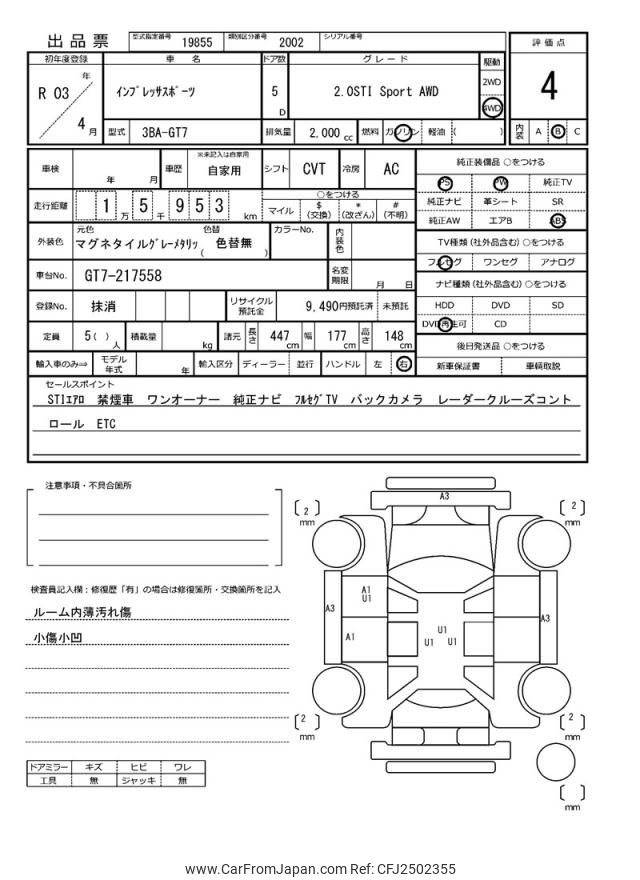 出品票 型式指定番号 19855 類別区分番号 2002 シリアル番号
評価点
初年度登録 車名 ドア数 グレード 駆動
R 03 年 インプレッサスポーツ 5 D 2.0STI Sport AWD 2WD 4WD
4
4 月 型式 3BA-GT7 排気量 2,000 cc 燃料 ガソリン 軽油 ( ) 内装 A B C
車検 年 月 車歴 ※未記入は自家用 自家用 シフト CVT 冷房 AC
純正装備品 ○をつける
PS PW 純正TV
純正ナビ 革シート SR
純正AW エアB ABS
走行距離 1 万 5 千 9 5 3 km
○をつける
マイル $ (交換) * (改ざん) # (不明)
外装色 元色 マグネタイルグレーメタリッ 色替 ( 色替無 ) カラーNo. 内装色
TV種類 (社外品含む) ○をつける
フルセグ ワンセグ アナログ
車台No. GT7-217558 名変期限 月 日
ナビ種類 (社外品含む) ○をつける
HDD DVD SD
DVD再生可 CD
登録No. 抹消 リサイクル預託金 9,490円預託済 未預託
定員 5 ( ) 人 積載量 kg 諸元 長さ 447 cm 幅 177 cm 高さ 148 cm
後日発送品 ○をつける
新車保証書 車輌取説
輸入車のみ⇒ モデル年式 年 輸入区分 ディーラー 並行 ハンドル 左 右
セールスポイント
STIエアロ 禁煙車 ワンオーナー 純正ナビ フルセグTV バックカメラ レーダークルーズコント
ロール ETC
注意事項・不具合箇所
検査員記入欄:修復歴「有」の場合は修復箇所・交換箇所を記入
ルーム内薄汚れ傷
小傷小凹
ドアミラー キズ ヒビ ワレ
工具 無 ジャッキ 無
A3
[ 2 ] mm
[ 2 ] mm
A1
U1
A3
A3
A1
U1
U1 U1
[ 2 ] mm
[ 2 ] mm
[ ] mm
www.CarFromJapan.com Ref: CFJ2502355